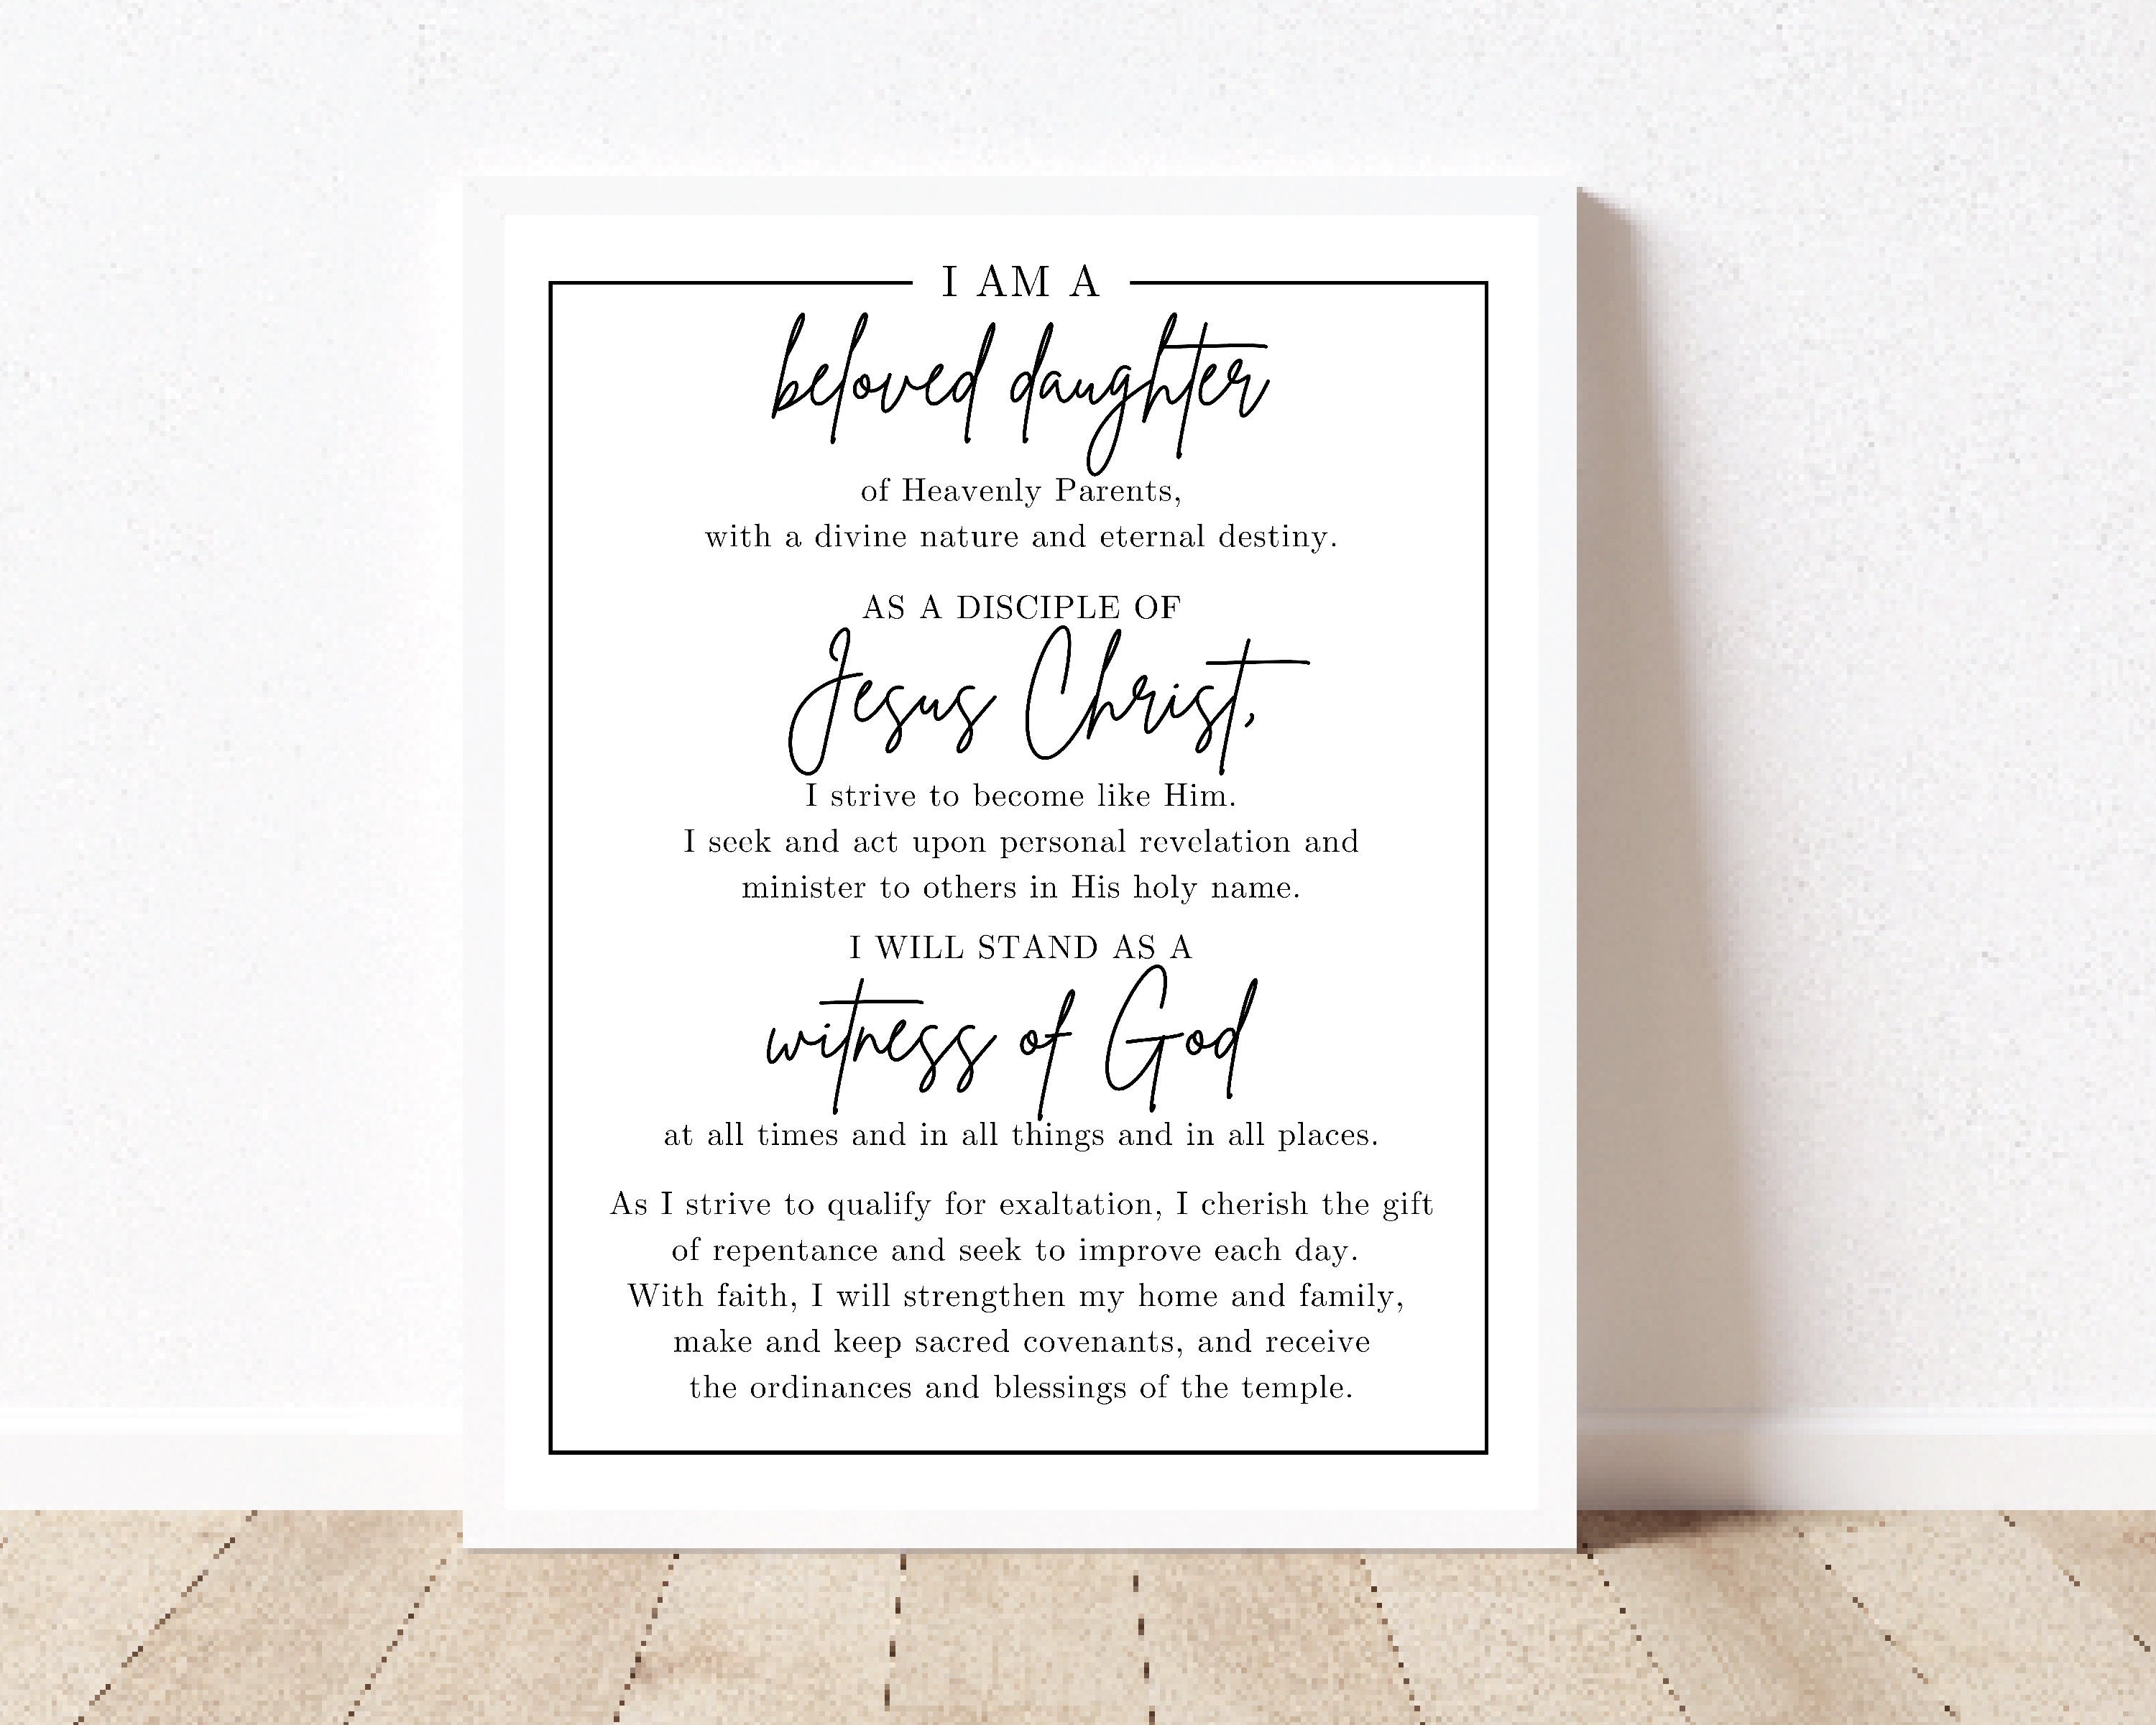 I AM A
beloved daughter
of Heavenly Parents,
with a divine nature and eternal destiny.
AS A DISCIPLE OF
Jesus Christ,
I strive to become like Him.
I seek and act upon personal revelation and
minister to others in His holy name.
I WILL STAND AS A
witness of God
at all times and in all things and in all places.
As I strive to qualify for exaltation, I cherish the gift
of repentance and seek to improve each day.
With faith, I will strengthen my home and family,
make and keep sacred covenants, and receive
the ordinances and blessings of the temple.